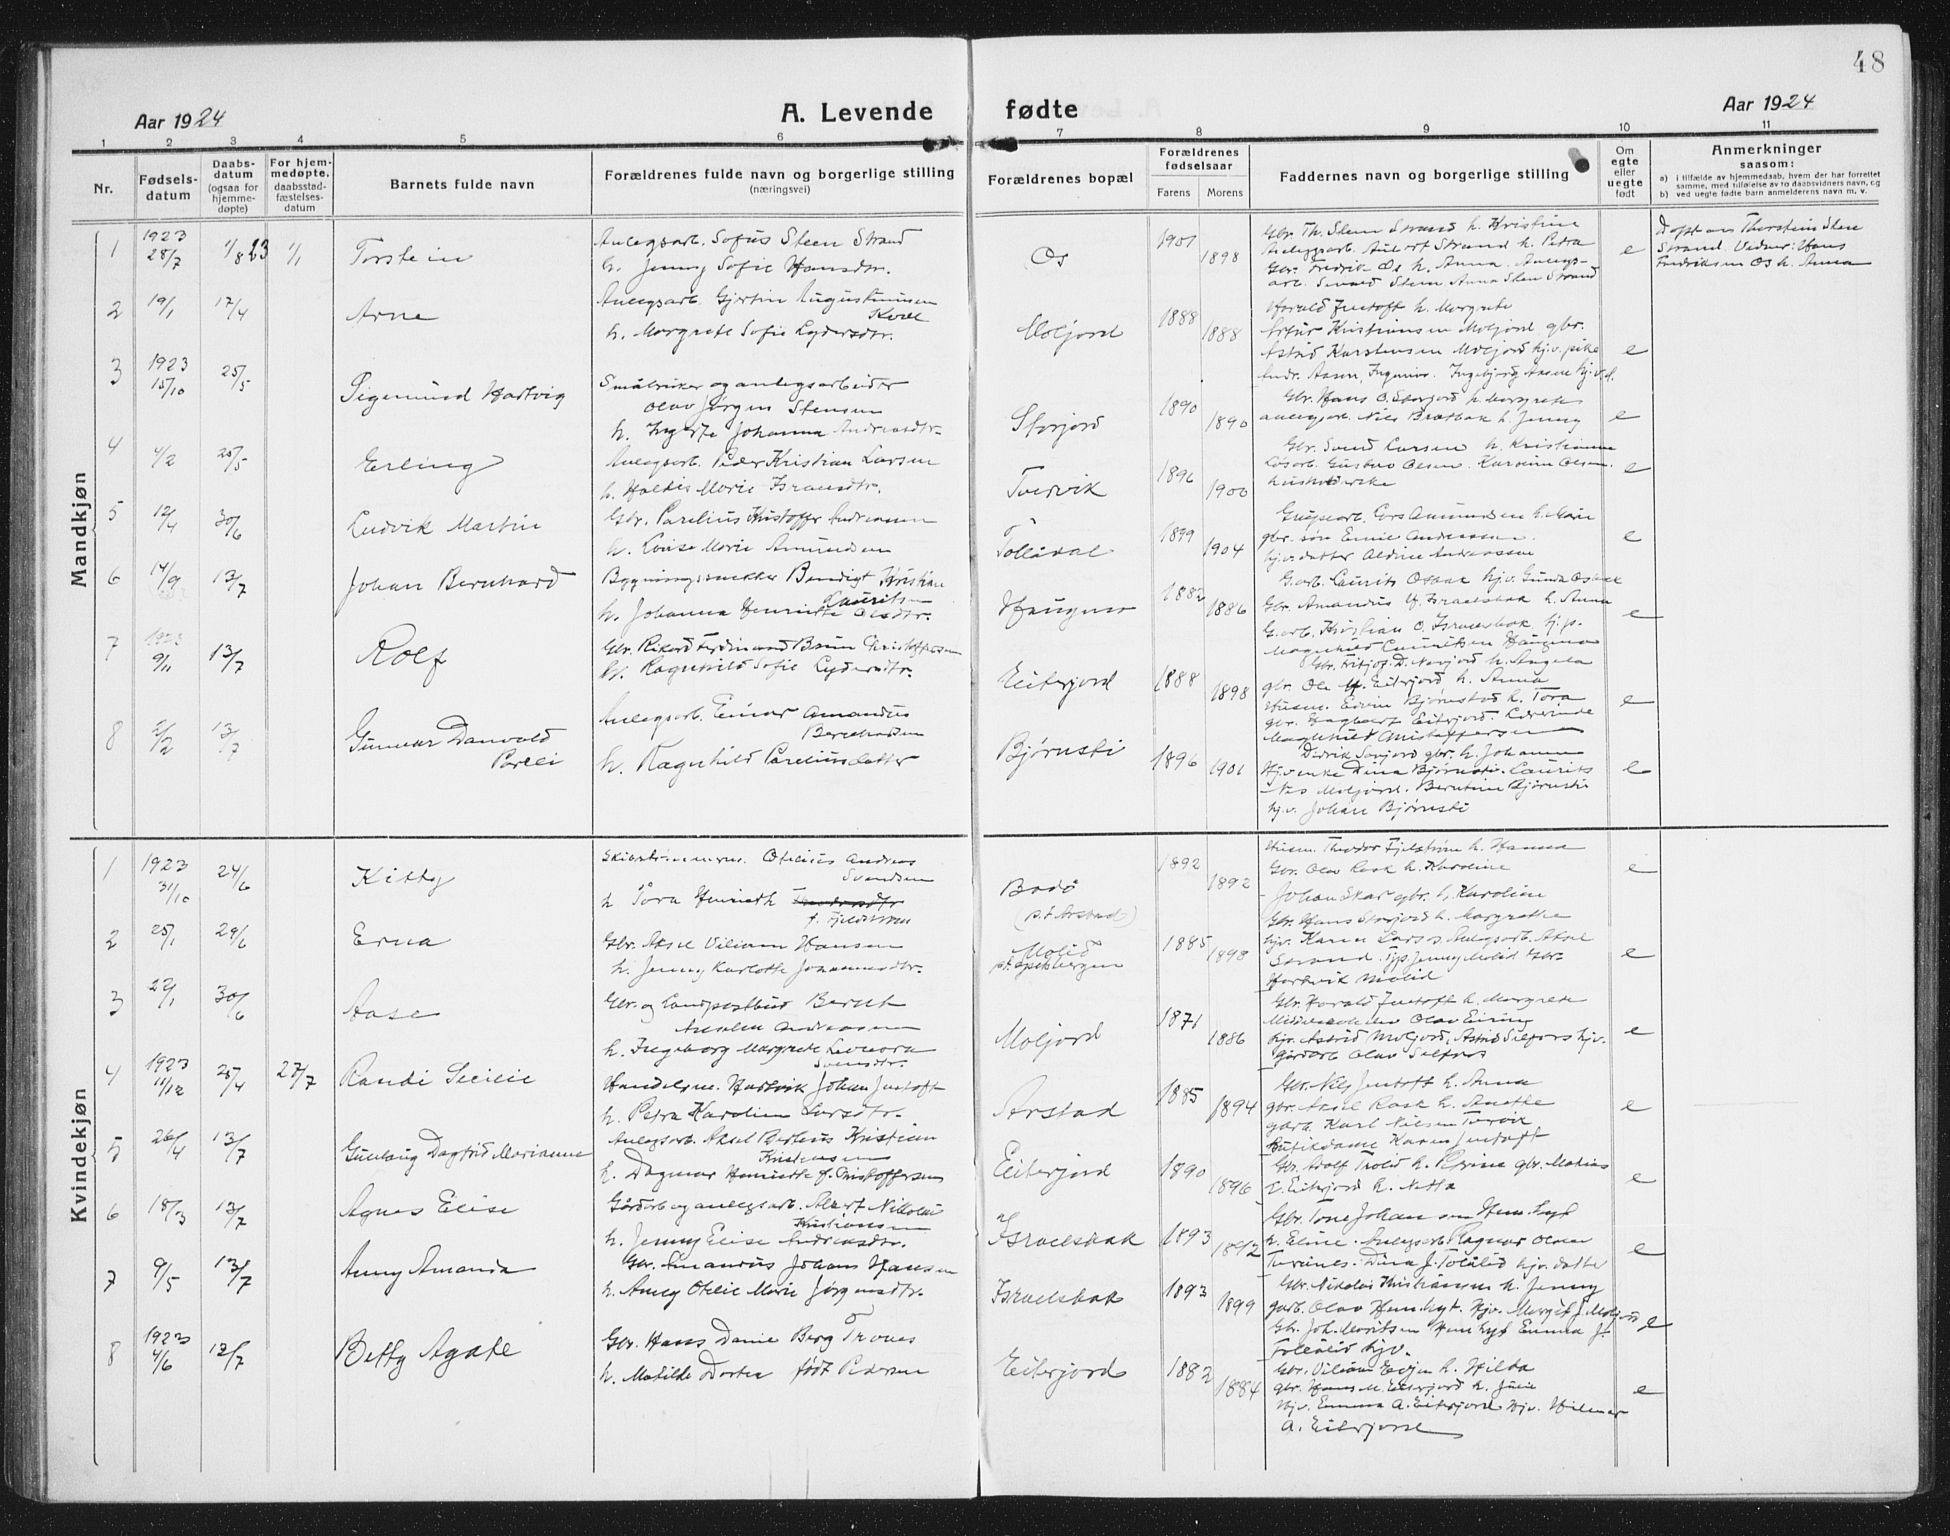 48
Aar 1924
A. Levende
fødte
Aar 1924
1 2 3 4 5 6 7 8 9 10 11
Nr.
Fødsels-
datum
Daabs-
datum
(ogsaa for
hjemme-
døpte)
For hjem-
medøpte.
daabsstad-
fæstelses-
datum
Barnets fulde navn
Forældrenes fulde navn og borgerlige stilling
(næringsvei)
Forældrenes bopæl
Forældrenes
fødselsaar
Farens Morens
Faddernes navn og borgerlige stilling
Om
egte
eller
uegte
født
Anmerkninger
saasom:
a) i tilfælde av hjemmedaab, hvem der har forrettet
samme, med tilføielse av to daabsvidners navn, og
b) ved uegte fødte barn anmelderens navn m. v.
Mandkjøn
1 1923 28/7 1/8 23 1/1 Torstein
Anlegsarb. Sofus Steen Strand
h. Jenny Sofie Hansdtr.
Os 1901 1898
Gbr. Th. Steen Strand h. Kristine
Anlegsarb. Strand h. Petra
Gbr. Fredrik Os h. Anna. Anlegs-
arb. Steen, Anna Steen Strand
e
Døpt av Thorstein Steen
Strand. Vidner: Hans
Fredriksen Os h. Anna
2 19/1 17/4 Arne
Anlegsarb. Gjertin Augustinusen
h. Margrete Sofie Lydersdtr.
Moljord 1888 1888
Harald Jentoft h. Margrete
Artur Kristiansen Moljord gbr.
Astrid Karstensen Moljord hj.v. pike
Andr. Aasen, Ingeniør. Ingebjørg Aasen
e
3 1923 15/10 25/5 Sigemund Hartvig
Småbruker og anlegsarbeider
Olav Jørgen Stensen
h. Johanna Andreasdtr.
Storjord 1890 1890
Gbr. Hans O. Storjord h. Margrete
anlegsarb. Nils Bratbak h. Jenny
e
4 4/2 25/5 Erling
Anlegsarb. Peder Kristian Larsen
h. Haldis Marie Fransdtr.
Tverrvik 1896 1900
Gbr. Svend Larsen h. Kristianna
Løsarb. Gustav Olsen. Karoline Olsen.
e
5 12/4 30/6 Ludvik Martin
Gbr. Parelius Kristoffer Andreassen
h. Lovise Marie Amundsen
Tollådal 1899 1904
Grubearb. Lars Amundsen h. Marie
gbr. søn Andreassen.
hj.v. datter Aldine Andreassen
e
6 14/9 13/7 Johan Bernhard
Bygningssnekker Bendigt Kristian
Lauritsen
h. Johanna Henriette Olsdtr.
Haugmo 1882 1886
G.arb. Laurits Osbak hj.v. Gunda Osbak
Gbr. Amandus H. Israelsbak h. Anna
G.arb. Kristian O. Israelsbak hj.p.
Magnhild Lauritsen Haugmo
e
7 1923 9/11 13/7 Rolf
Gbr. Rikard Ferdinand Brun Christoffersen
h. Ragnhild Sofie Lydersdtr.
Eiterjord 1888 1898
Gbr. Fritjof D. Nevjord h. Angela
gbr. Ole M. Eiterjord h. Anna
Husm. Edvin Bjørnstad h. Tora
gbr. Hagbart Eiterjord. Lærerinde
Magnhild Christoffersen
e
8 2/2 13/7 Gunnar Danvald
Parelli
Anlegsarb. Einar Amandus
h. Ragnhild Pareliusdatter
Bjørnsti 1896 1901
Didrik Storjord gbr. h. Johanna
Hjv. enke Dina Bjørnsti. Laurits
Nes Moljord. Berntine Bjørnsti
hj.v. Johan Bjørnsti
e
Kvindekjøn
1 1923 31/10 24/6 Kitty
Otelius Andreas
Svendsen
h Tora Henrieth
f. Fjeldstrøm
Bodø
(p.t Arstad)
1892 1892
Husm. Theodor Fjelstrøm h. Hanna
Gbr. Olav Rask h. Karoline
Johan Skar gbr. h. Karoline
e
2 25/1 29/6 Erna
Gbr. Aksel Viliam Hansen
h. Jenny Karlotte Johannesdtr.
Molid
p.t. Spitsbergen
1885 1898
Gbr. Hans Storjord h. Margrethe
hjv. Karen Larsos Anlegsarb. Aksel
Strand. Tjp. Jenny Molid Gbr.
Hartvik Molid
e
3 22/1 30/6 Aase
Gbr. og Landpostbud Bernt
Andreassen
h. Ingeborg Margrete Leonora
Svendsdtr.
Moljord 1871 1886
Gbr. Harald Jentoft h. Margrete
Olav Eiring
hjv. Astrid Moljord, Astrid Selfors hjv.
gårdarb Olav Selfors
e
4 1923 11/12 25/4 27/7 Randi Secilie
Handelsm. Hartvik Johan Jentoft
h. Petra Karoline Larsdtr.
Arstad 1885 1894
Gbr. Nils Jentoft h. Anna
gbr. Aksel Rask h. Anette
garb. Karl Nilsen Torvik
Butikdame Karen Jentoft
e
5 26/4 13/7 Gunlaug Dagfrid Marianne
Anlegsarb. Aksel Berteus Kristian
Kristensen
h. Dagmar Henriette f. Christoffersen
Eiterjord 1890 1896
Gbr. Adolf Trolid h. Petrine gbr. Matias
E. Eiterjord h. Netta
e
6 18/3 13/7 Agnes Elise
Gårdarb og anlegsarb. Albert Nikolai
Kristiansen
h. Jenny Elise Andreasdtr.
Israelsbak 1893 1892
Gbr. Tone Johansen Hem.hyt
h. Eline. Anlegsarb. Ragnar Olsen
Tverrnes. Dina J. Tollålid hjv. datter
e
7 9/5 13/7 Anny Amanda
Gbr. Amandus Johan Hansen
h. Anny Otelie Marie Jørgensdtr.
Israelsbak 1893 1899
Gbr. Nikolai Kristiansen h. Jenny
garb. Olav Hemhyt. Hjv. Margit J. Moljord
Gbr. Joh. Moritsen Hemhyt Emma J.
Tollålid hjv.
e
8 1923 4/6 12/7 Betty Agate
Gbr. Hans Danie Berg Trones
h. Matilde Dortea født Pedersen
Eiterjord 1882 1884
Gbr. Viliam Evjen h. Hilda
gbr. Hans M. Eiterjord h. Julie
Hjv. Emma A. Eiterjord Hjv. Hilmar
A. Eiterjord
e